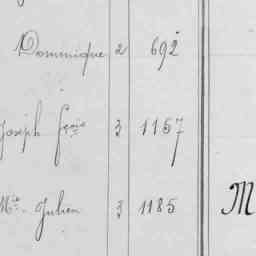 Dominique 2 692
Joseph fçois 3 1157
Mie Julien 3 1185 M